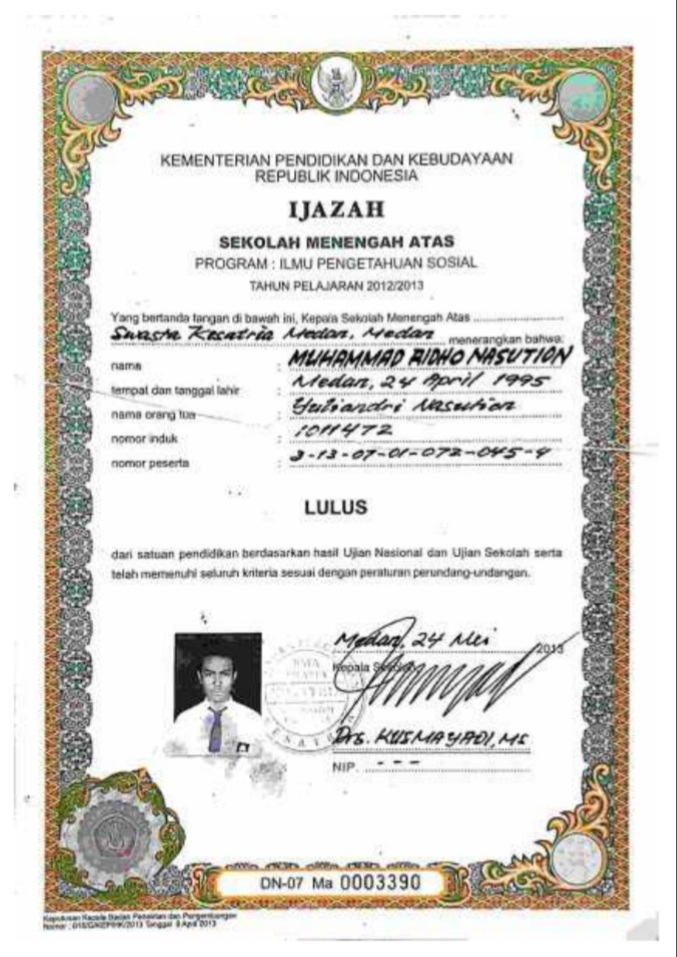 KEMENTERIAN PENDIDIKAN DAN KEBUDAYAAN
REPUBLIK INDONESIA
IJAZAH
SEKOLAH MENENGAH ATAS
PROGRAM : ILMU PENGETAHUAN SOSIAL
TAHUN PELAJARAN 2012/2013
Yang bertanda tangan di bawah ini, Kepala Sekolah Menengah Atas
Swasta Kesatria Medan, Medan menerangkan bahwa:
nama : MUHAMMAD RIDHO NASUTION
tempat dan tanggal lahir : Medan, 24 April 1995
nama orang tua : Yuliandri Nasution
nomor induk : 1011472
nomor peserta : 3-13-07-01-072-045-4
LULUS
dari satuan pendidikan berdasarkan hasil Ujian Nasional dan Ujian Sekolah serta
telah memenuhi seluruh kriteria sesuai dengan peraturan perundang-undangan.
Medan, 24 Mei 2013
Kepala Sekolah
Drs. KUSMAYADI, MS
NIP. - - -
DN-07 Ma 0003390
Keputusan Kepala Badan Penelitian dan Pengembangan
Nomor : Tanggal 8 April 2013